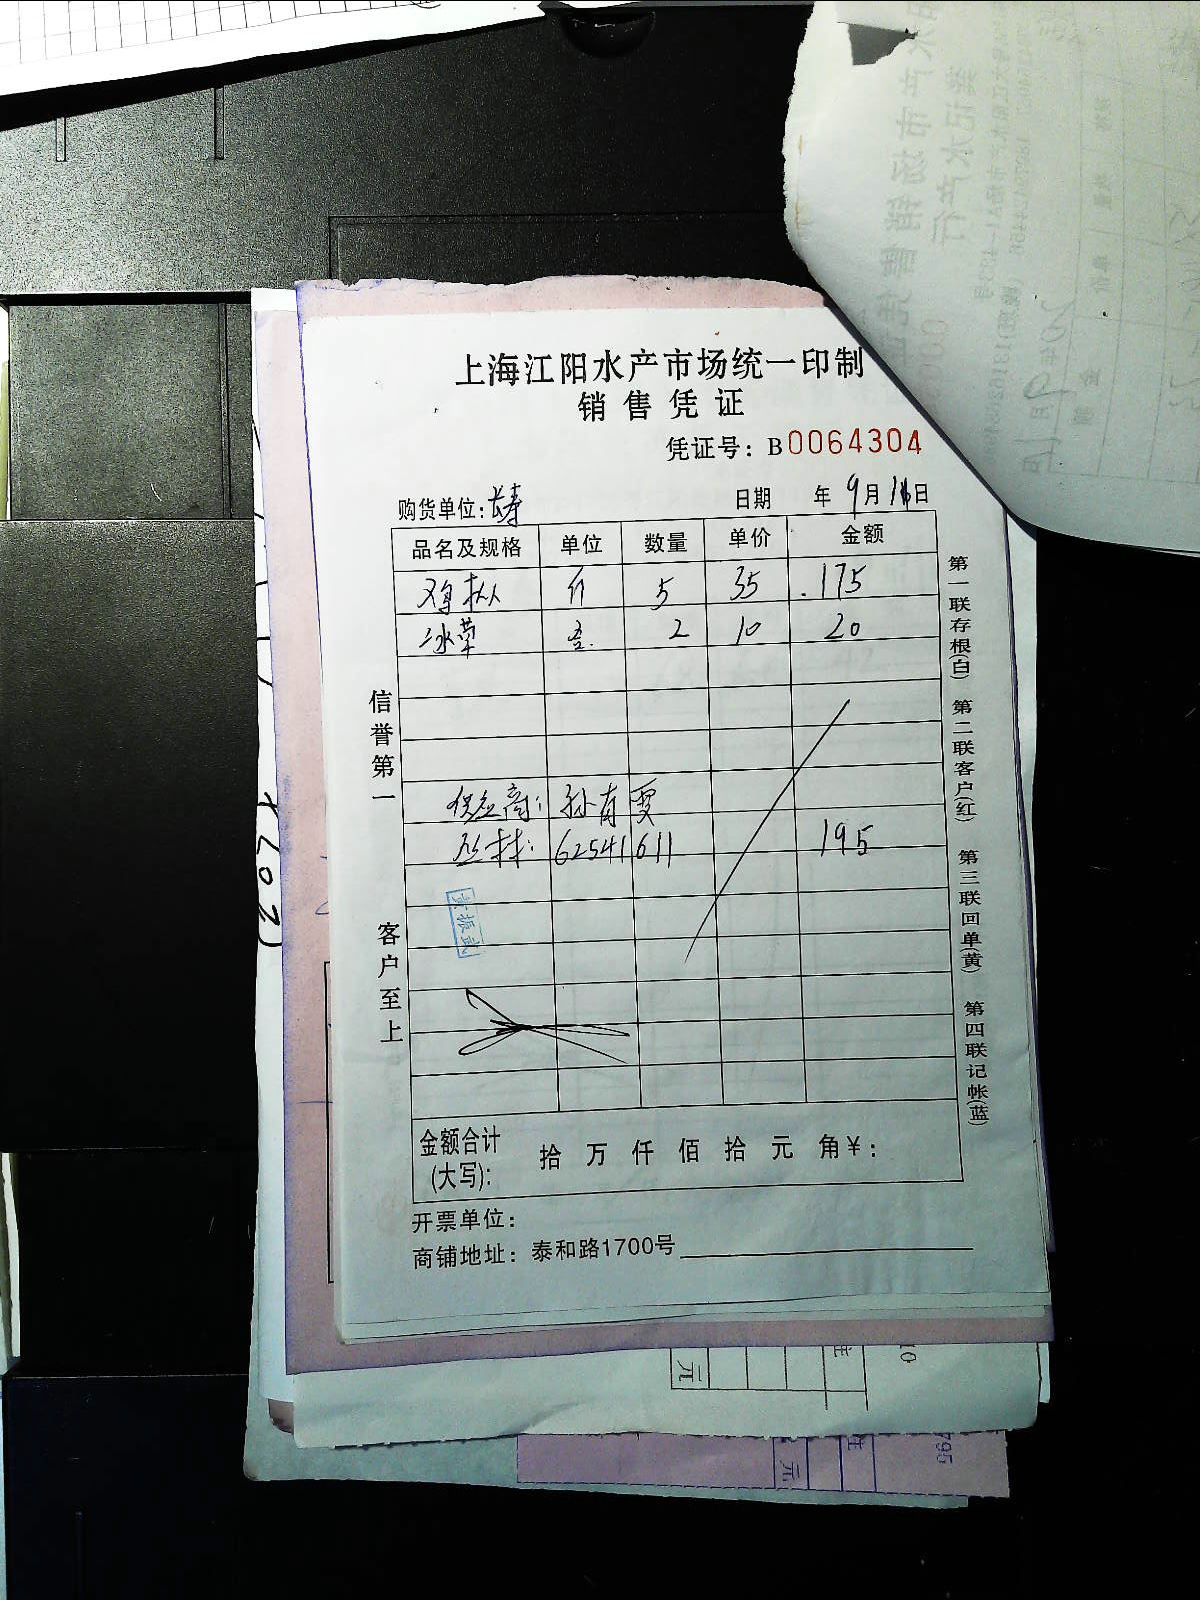 上海江阳水产市场统一印制
销售凭证
凭证号：B0064304
购货单位：长寿 日期 年 9月 日
品名及规格 单位 数量 单价 金额
鸡枞 斤 5 35 175
冰草 盒 2 10 20
供应商：孙有
丛林：62541611 195
黄振武
金额合计(大写)： 拾 万 仟 佰 拾 元 角￥：
开票单位：
商铺地址：泰和路1700号
信誉第一
客户至上
第一联存根(白) 第二联客户(红) 第三联回单(黄) 第四联记帐(蓝)
元
795